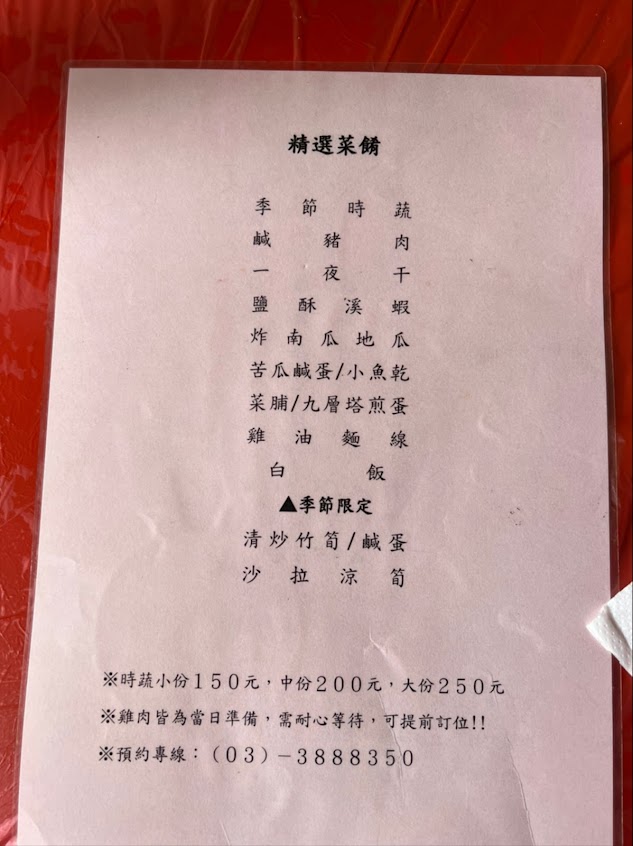 精選菜餚
季節時蔬
鹹豬肉
一夜干
鹽酥溪蝦
炸南瓜地瓜
苦瓜鹹蛋/小魚乾
菜脯/九層塔煎蛋
雞油麵線
白飯
▲季節限定
清炒竹筍/鹹蛋
沙拉涼筍
※時蔬小份150元，中份200元，大份250元
※雞肉皆為當日準備，需耐心等待，可提前訂位!!
※預約專線：（03）－3888350